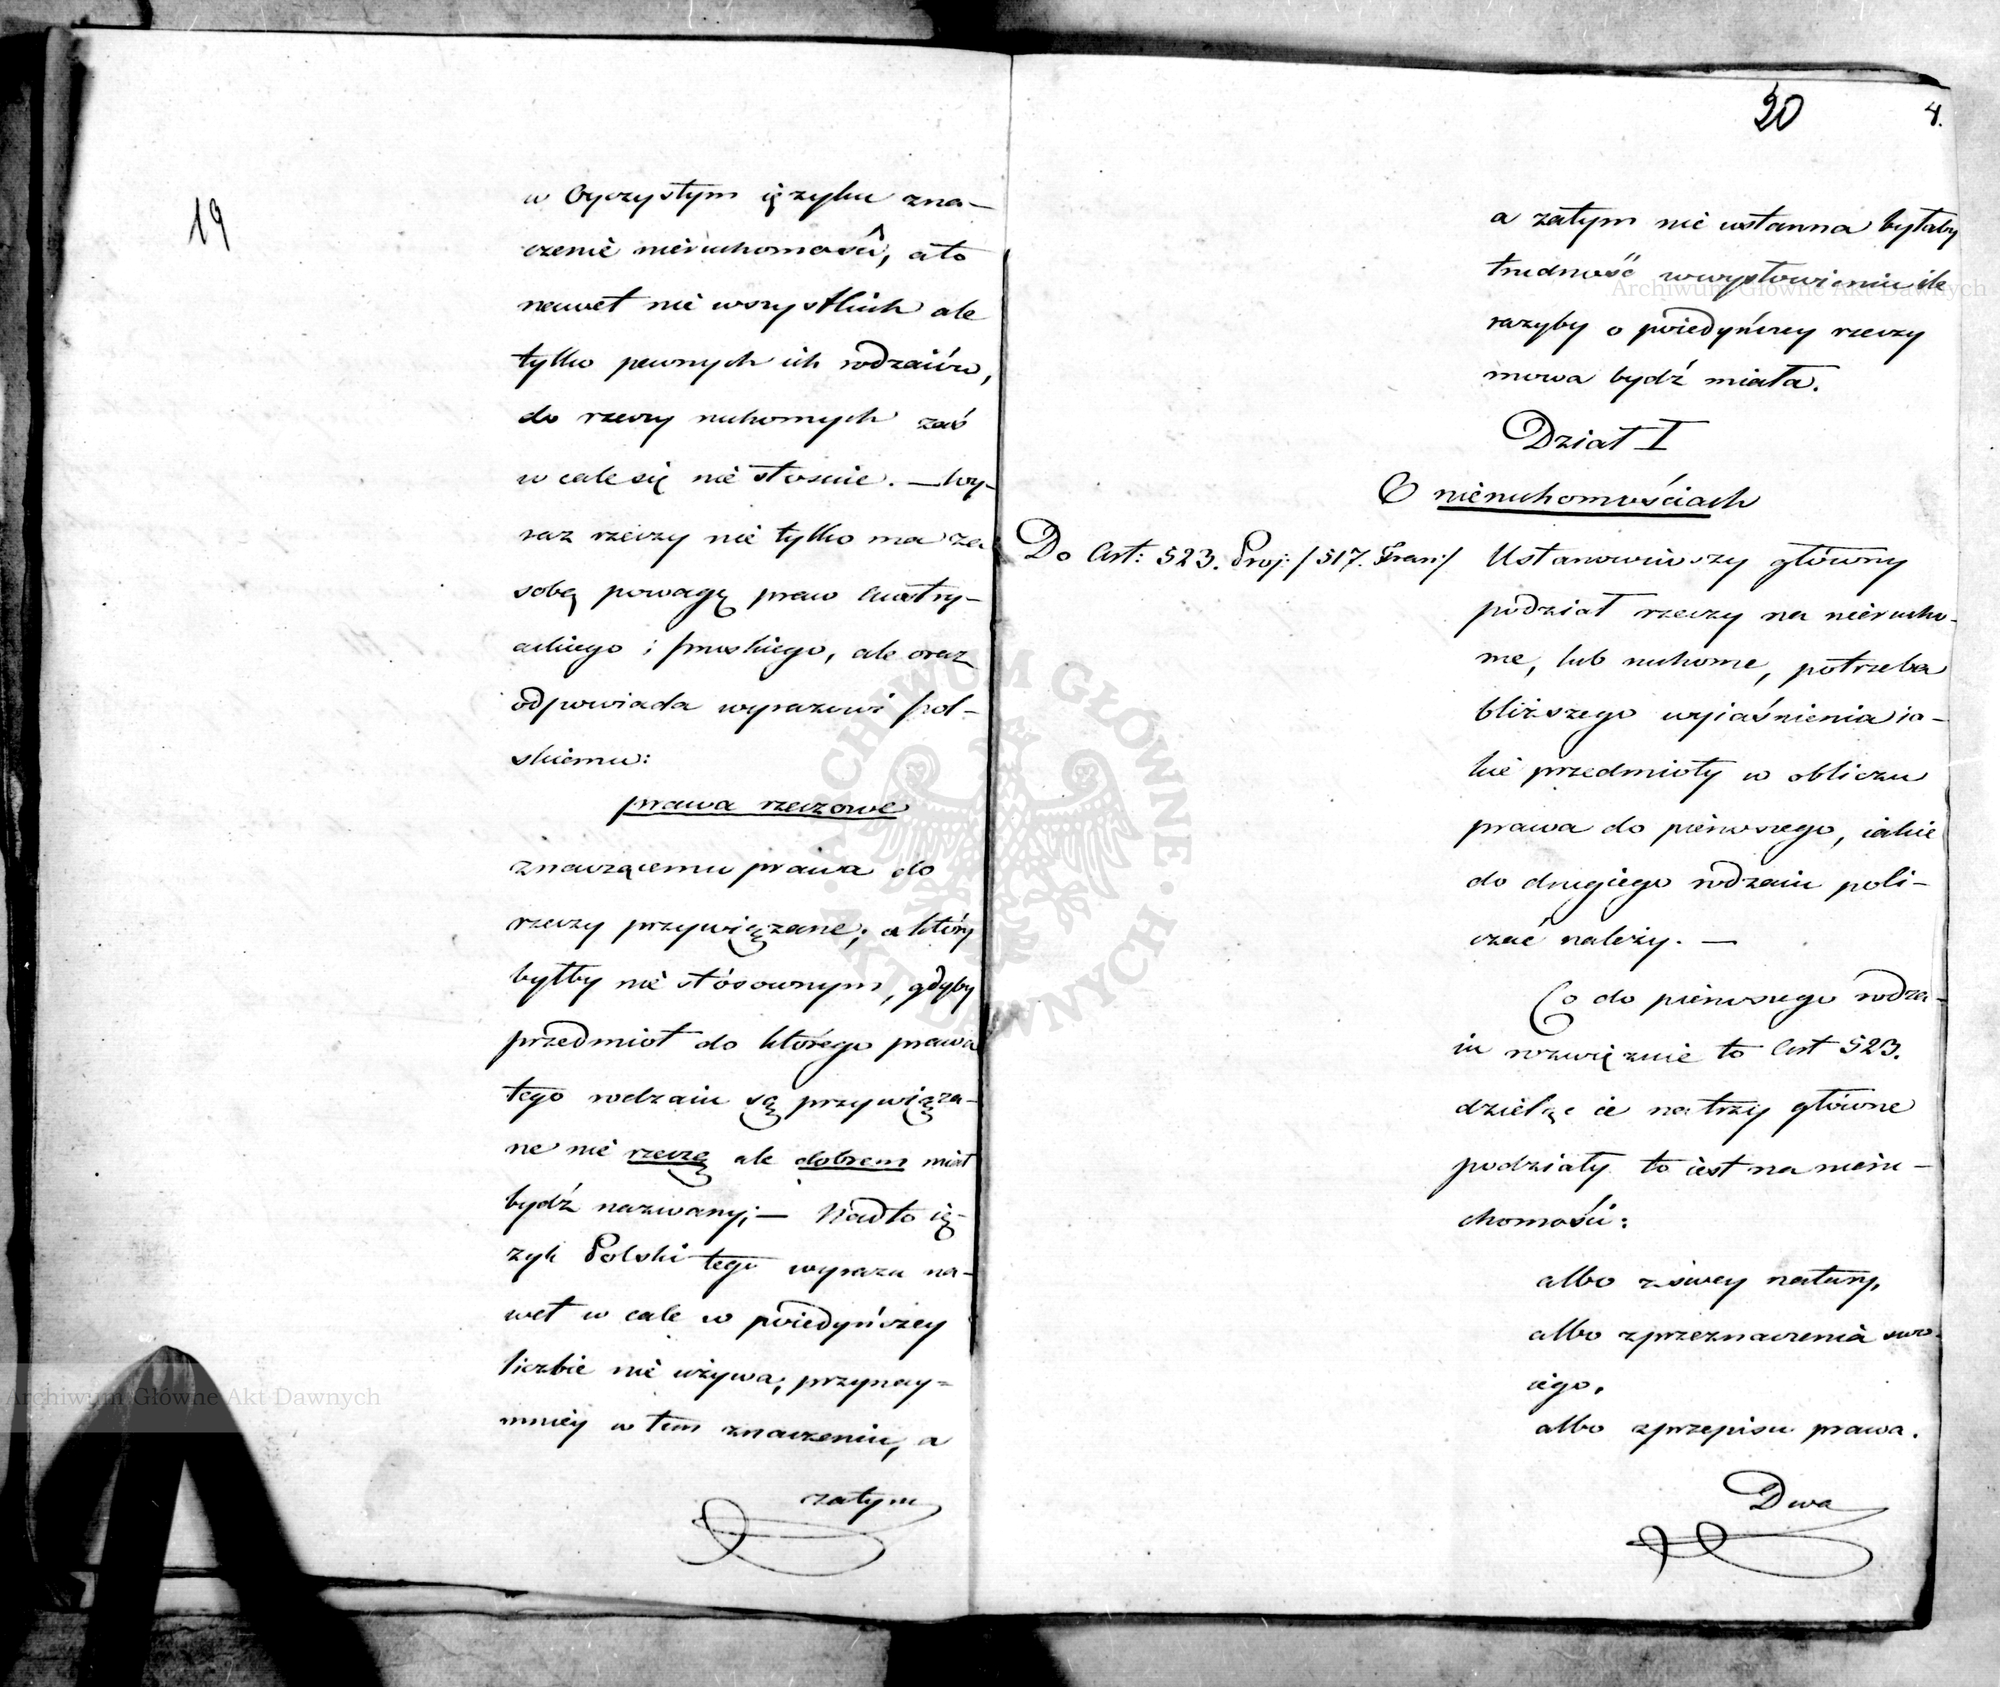 19
w Oyczystym ięzyku zna-
czenie nieruchomości, a to
nawet nie wszystkich ale
tylko pewnych ich rodzaiów,
do rzeczy ruchomych zaś
w cale się nie stosuie. — Wy-
raz rzeczy nie tylko ma za
sobą powagę praw Austry-
ackiego i pruskiego, ale oraz
odpowiada wyrazowi pol-
skiemu:
prawa rzeczowe
znaczącemu prawa do
rzeczy przywiązane; a który
byłby nie stósownym, gdyby
przedmiot do którego prawa
tego rodzaiu są przywiąza-
ne nie rzeczą ale dobrem miał
bydź nazwany; — Nadto ię-
zyk Polski tego wyrazu na-
wet w cale w poiedyńczey
liczbie nie używa, przynay-
mniey w tem znaczeniu, a
zatym
20 4.
a zatym nie ustanna byłaby
trudność w wysłowieniu ile
razyby o poiedyńczey rzeczy
mowa bydź miała.
Dział I
O nieruchomościach
Do Art: 523. Proj: /517. Fran:/ Ustanowiwszy główny
podział rzeczy na nierucho-
me, lub ruchome, potrzeba
bliższego wyiaśnienia ia-
kie przedmioty w obliczu
prawa do pierwszego, iakie
do drugiego rodzaiu poli-
czać należy. —
Co do pierwszego rodza-
iu rozwięzuie to Art 523.
dzieląc ie na trzy główne
podziały to iest na nieru-
chomości:
albo z swey natury,
albo z przeznaczenia swo-
iego,
albo z przepisu prawa.
Dwa
Archiwum Główne Akt Dawnych
Archiwum Główne Akt Dawnych
ARCHIWUM GŁÓWNE · AKT DAWNYCH ·